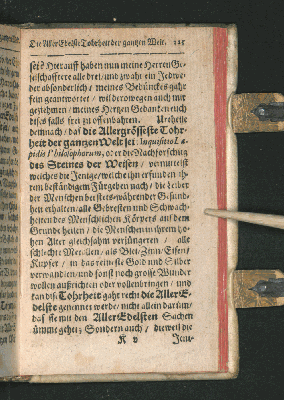 Die Aller Edelste Tohrheit der gantzen Welt. 225
sei? Hierauff haben nun meine Herren Ge-
selschaffterê alle drei/ und zwahr ein Jedwe-
der absonderlich / meines Behünkes gahr
fein geantwortet / wil derowegen auch mir
geziehmen / meines Hertzen Gedanken euch
disfals frei zu offenbahren. Urtheile
demnach/ das die Allergrösseste Tohr-
heit der gantzen Welt sei: Inquisitio La-
pidis Philosophorum, oder die Nachforschūg
des Steines der Weisen / vermittelst
welches die Jenige/ welche ihn erfunden ih-
rem beständigem Fürgeben nach/ die Leiber
der Menschen bei stets-währender Gesund-
heit erhalten/ alle Gebresten und Schwach-
heiten des Menschlichen Körpers auß dem
Grunde heilen / die Menschen in ihrem ho-
hen Alter gleichsahm verjüngeren / alle
schlechte Metallen/ als Blei/ Zinn/ Eisen/
Kupfer / in das reineste Gold und Silber
verwandlen/ und sonst noch grosse Wunder
wollen außrichten oder vollenbringen / und
kan dise Tohrheit gahr recht die Aller E-
delste genennet werden/ nicht allein darum/
das sie mit den Aller Edelsten Sachen
ümme gehet; Sondern auch/ dieweil die
K v Jeni-